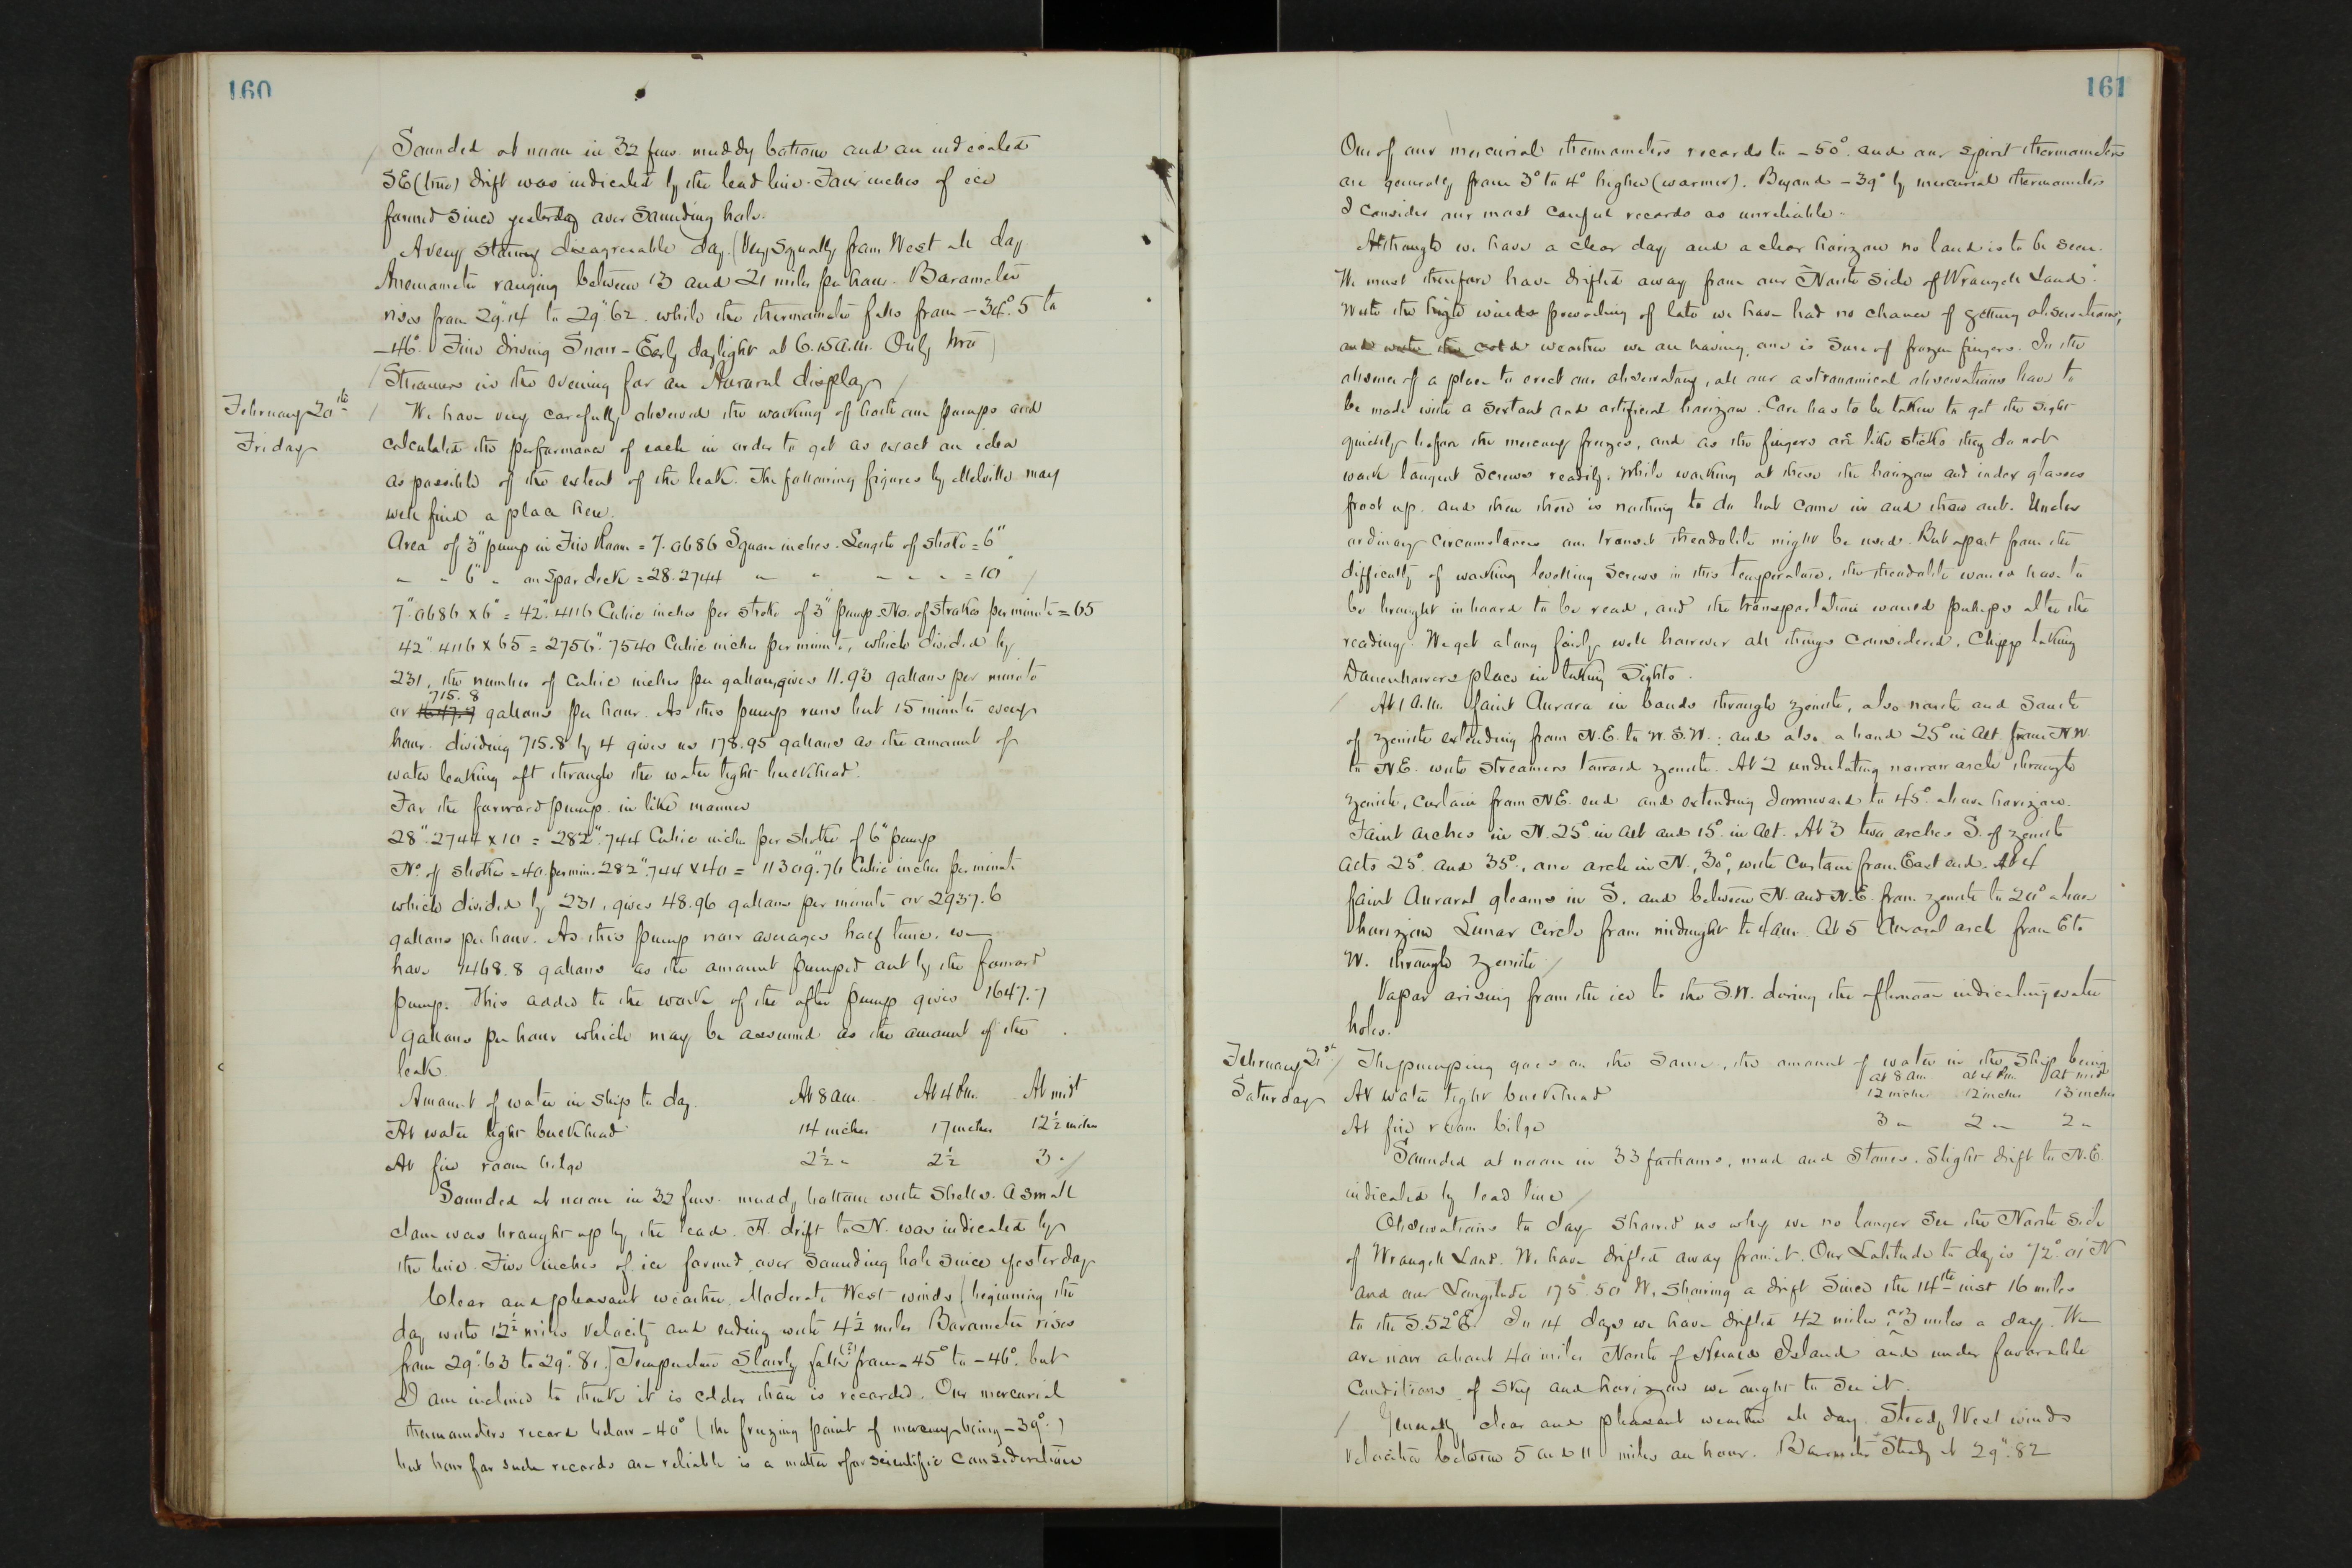 160
Sounded at noon in 32 fms. muddy bottom and an indicated
SE (true) drift was indicated by the lead line. Four inches of ice
formed since yesterday over Sounding hole.
A very stormy disagreeable day. (Very Squally from West all day
Anemometer ranging between 13 and 21 miles per hour. Barometer
rises from 29".14 to 29".62 while the thermometer falls from -34°.5 to
-46°. Fine driving Snow - Early daylight at 6.15 a.m. Only two)
Streamers in the evening for an Auroral display
February 20th
Friday
We have very carefully observed the working of both our pumps and
calculated the performance of each in order to get as exact an idea
as possible of the extent of the leak. The following figures by Melville may
well find a place here.
Area of 3" pump in Fire Room = 7.0686 Square inches. Length of stroke = 6"
" " 6" " on Spar deck = 28.2744 " " " " " = 10"
7".0686 x 6" = 42".4116 Cubic inches per stroke of 3" pump. No. of strokes per minute = 65
42".4116 x 65 = 2756".7540 Cubic inches per minute, which divided by
231, the number of cubic inches per gallon, gives 11.93 gallons per minute
715.8
or 1647.7 gallons per hour. As this pump runs but 15 minutes every
hour. dividing 715.8 by 4 gives us 178.95 gallons as the amount of
water leaking aft through the water tight bulkhead.
For the forward pump. in like manner
28".2744 x 10 = 282".744 Cubic inches per stroke of 6" pump
No. of strokes = 40 per min. 282".744 x 40 = 11309".76 Cubic inches per minute
which divided by 231, gives 48.96 gallons per minute or 2937.6
gallons per hour. As this pump now averages half time, we
have 1468.8 gallons as the amount pumped out by the forward
pump. This added to the work of the after pump gives 1647.7
gallons per hour which may be assumed as the amount of the
leak.
Amount of water in Ship to day. At 8 am. At 4 Pm. At mid't
At water tight bulkhead 14 inches 17 inches 12½ inches
At fire room bilge 2½ " 2½ 3 "
Sounded at noon in 32 fms. muddy bottom with Shells. A small
clam was brought up by the lead. A drift to N. was indicated by
the line. Five inches of ice formed over Sounding hole since yesterday
Clear and pleasant weather. Moderate West winds (beginning the
day with 12½ miles velocity and ending with 4½ miles Barometer rises
from 29".63 to 29".81.) Temperature Slowly falls (?) from -45° to -46°. but
I am inclined to think it is colder than is recorded. Our mercurial
thermometers record below -40° (the freezing point of mercury being -39°.)
but how far such records are reliable is a matter of for scientific consideration
161
One of our mercurial thermometers records to -50°. and our spirit thermometers
are generally from 3° to 4° higher (warmer). Beyond -39° by mercurial thermometers
I consider our most careful records as unreliable.
Although we have a clear day and a clear horizon no land is to be seen.
We must therefore have drifted away from our "North Side of Wrangell Land".
With the high winds prevailing of late we have had no chance of getting observations,
and with the cold weather we are having, one is Sure of frozen fingers. In the
absence of a place to erect our observatory, all our astronomical observations have to
be made with a Sextant and artificial horizon. Care has to be taken to get the sight
quickly before the mercury freezes, and as the fingers are like sticks they do not
work tangent Screws readily. While working at these the horizon and index glasses
frost up. and then there is nothing to do but come in and thaw out. Under
ordinary Circumstances our transit theodolite might be used. But apart from the
difficulty of working levelling Screws in this temperature, the theodolite would have to
be brought inboard to be read, and the transportation would perhaps alter the
reading. We get along fairly well however all things considered, Chipp taking
Danenhowers place in taking Sights.
At 1 a.m. faint Aurora in bands through zenith, also north and South
of zenith extending from N.E. to W.S.W.: and also a band 25° in alt. from N.W.
to N.E. with Streamers toward zenith. At 2 undulating narrow arch through
zenith, curtain from N.E. end and extending downward to 45° above horizon.
Faint arches in N. 25° in alt and 15° in alt. At 3 two arches S. of zenith
alts 25° and 35°, one arch in N., 30°, with Curtain from East end. At 4
faint Auroral gleams in S. and between N. and N.E. from zenith to 20° above
horizon Lunar Circle from midnight to 4 am. At 5 Auroral arch from E to
W. through zenith
Vapor arising from the ice to the S.W. during the afternoon indicating water
holes.
February 21st
Saturday
The pumping goes on the Same, the amount of water in the Ship being
at 8 am. at 4 Pm. at mid
At water tight bulkhead 12 inches 12 inches 13 inches
At fire room bilge 3 " 2 " 2 "
Sounded at noon in 33 fathoms, mud and Stones. Slight drift to N.E.
indicated by lead line
Observations to day Showed us why we no longer See the North Side
of Wrangell Land. We have drifted away from it. Our Latitude to day is 72°.01' N
and our Longitude 175°.50 W, Showing a drift Since the 14th inst 16 miles
to the S.52°E. In 14 days we have drifted 42 miles, or 3 miles a day. We
are now about 40 miles North of Herald Island and under favorable
Conditions of Sky and horizon we ought to See it.
Generally clear and pleasant weather all day. Steady West winds
Velocities between 5 and 11 miles an hour. Barometer Steady at 29".82